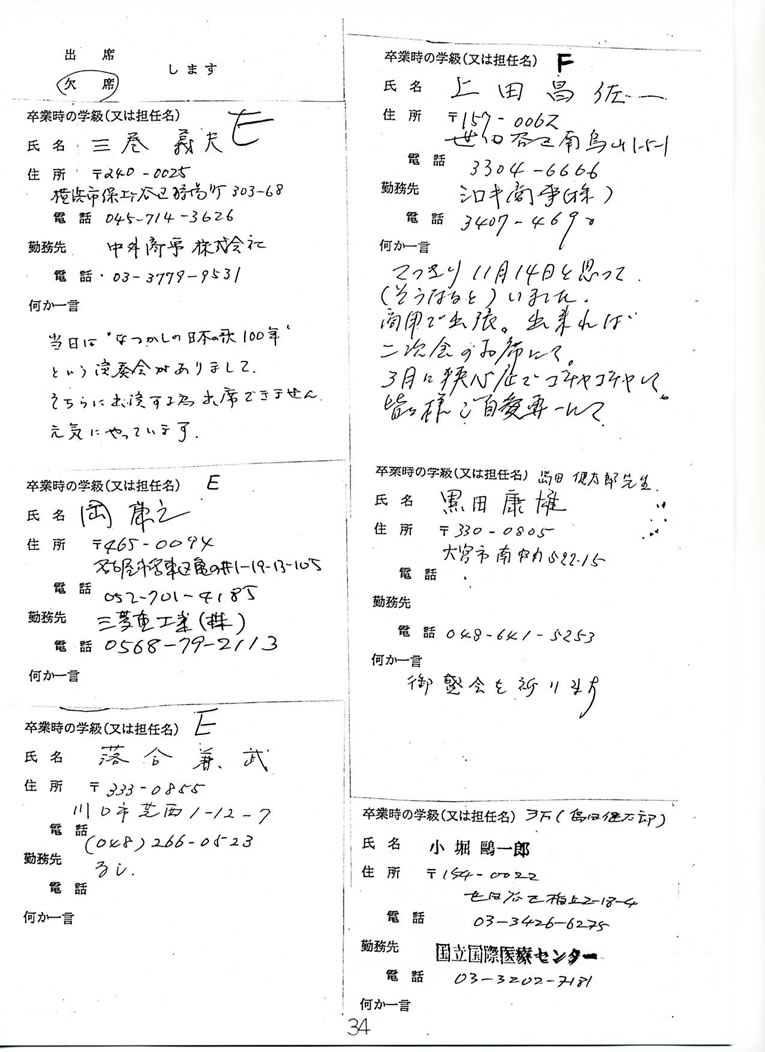 出 席
欠 席
します
卒業時の学級(又は担任名) E
氏 名 三巻 義夫
住 所 〒240-0025
横浜市保土ヶ谷区狩場町303-68
電 話 045-714-3626
勤務先 中外商事 株式会社
電 話 03-3779-9531
何か一言
当日は“なつかしの日本の歌100年”
という演奏会がありまして、
そちらに出演する為出席できません。
元気にやっています。
卒業時の学級(又は担任名) E
氏 名 岡 康之
住 所 〒465-0094
名古屋市名東区亀の井1-19-13-105
電 話 052-701-4185
勤務先 三菱重工業(株)
電 話 0568-79-2113
何か一言
卒業時の学級(又は担任名) E
氏 名 落合 兼武
住 所 〒333-0855
川口市芝西1-12-7
電 話 (048)266-0523
勤務先 なし
電 話
何か一言
卒業時の学級(又は担任名) F
氏 名 上田 昌佐
住 所 〒157-0062
世田谷区南烏山1-5-1
電 話 3304-6666
勤務先 シロキ商事(株)
電 話 3407-4690
何か一言
てっきり11月14日と思って
(そうなると)いました。
商用で出張。出来れば
二次会のお席にて。
3月に狭心症でゴチャゴチャして。
皆々様ご自愛専一にて
卒業時の学級(又は担任名) 島田健太郎先生
氏 名 黒田 康雄
住 所 〒330-0805
大宮市南中丸522-15
電 話
勤務先
電 話 048-641-5253
何か一言
御盛会を祈ります
卒業時の学級(又は担任名) 3F(島田健太郎)
氏 名 小堀 鷗一郎
住 所 〒154-0022
世田谷区梅丘2-18-4
電 話 03-3426-6275
勤務先 国立国際医療センター
電 話 03-3202-7181
何か一言
34